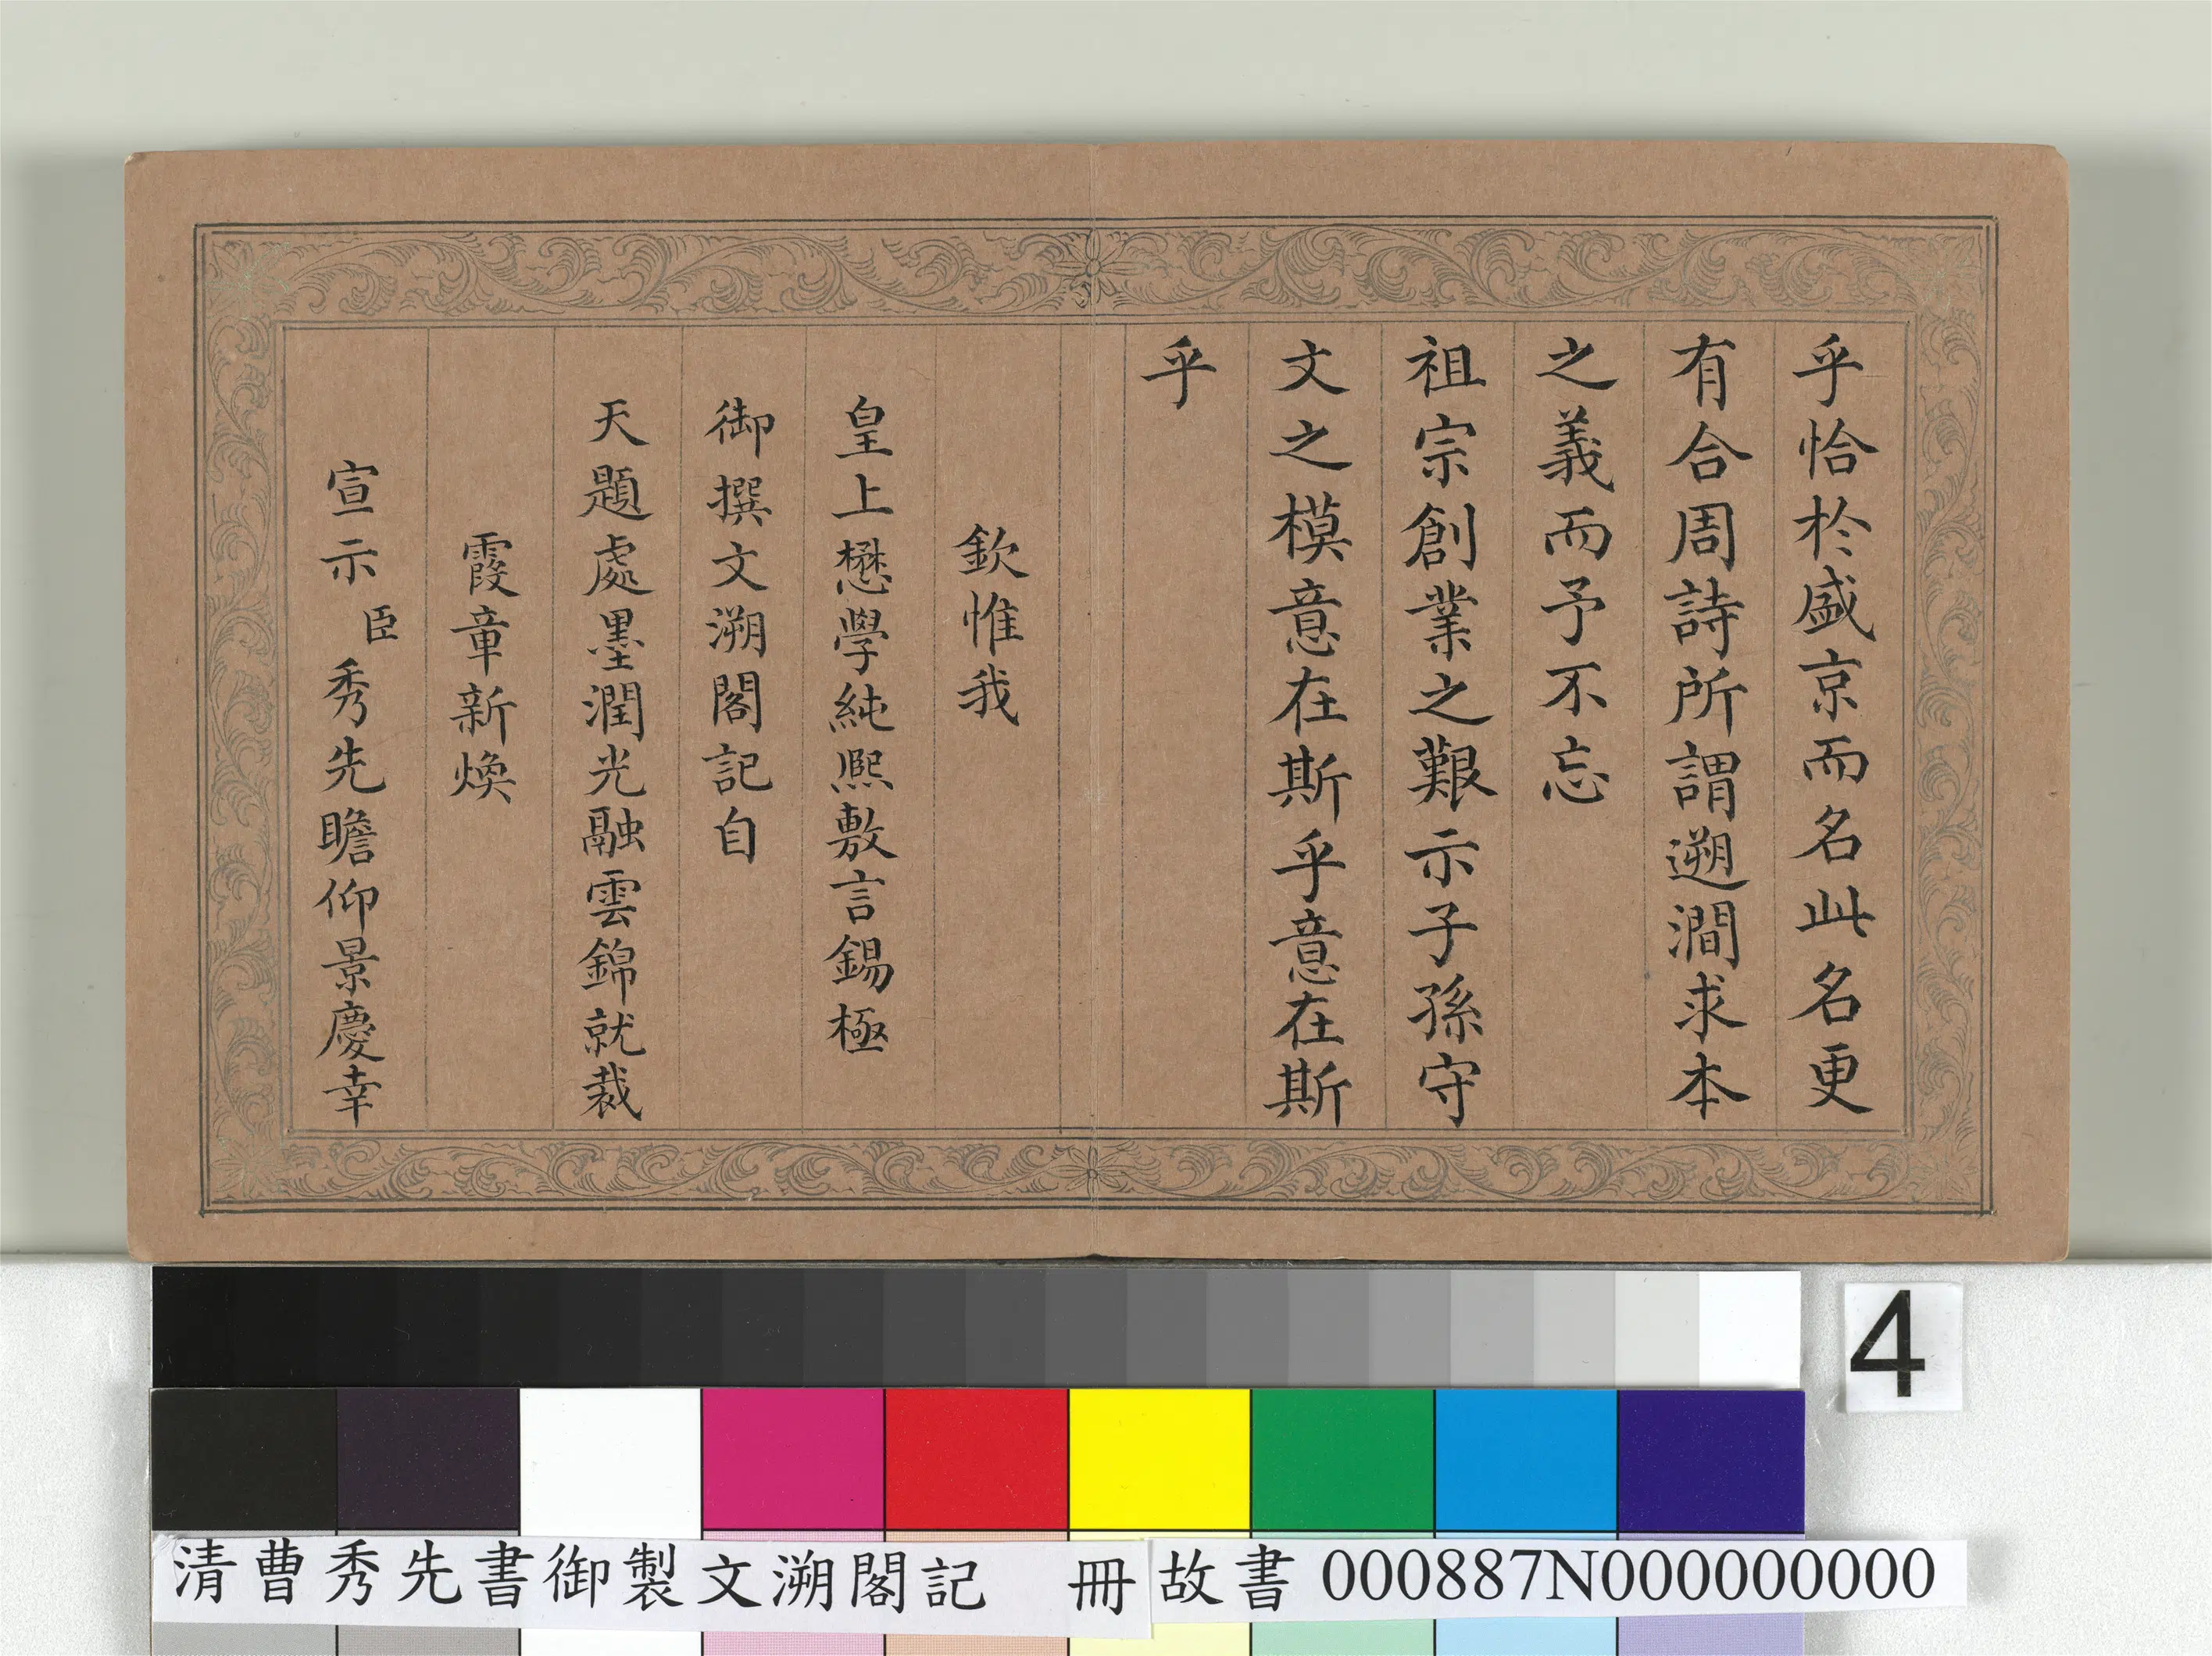 乎恰於盛京而名此名更
有合周詩所謂遡澗求本
之義而予不忘
祖宗創業之艱示子孫守
文之模意在斯乎意在斯
乎
欽惟我
皇上懋學純熙敷言錫極
御撰文溯閣記自
天題處墨潤光融雲錦就裁
霞章新煥
宣示臣秀先瞻仰景慶幸
4
清曹秀先書御製文溯閣記 冊 故書 000887N000000000